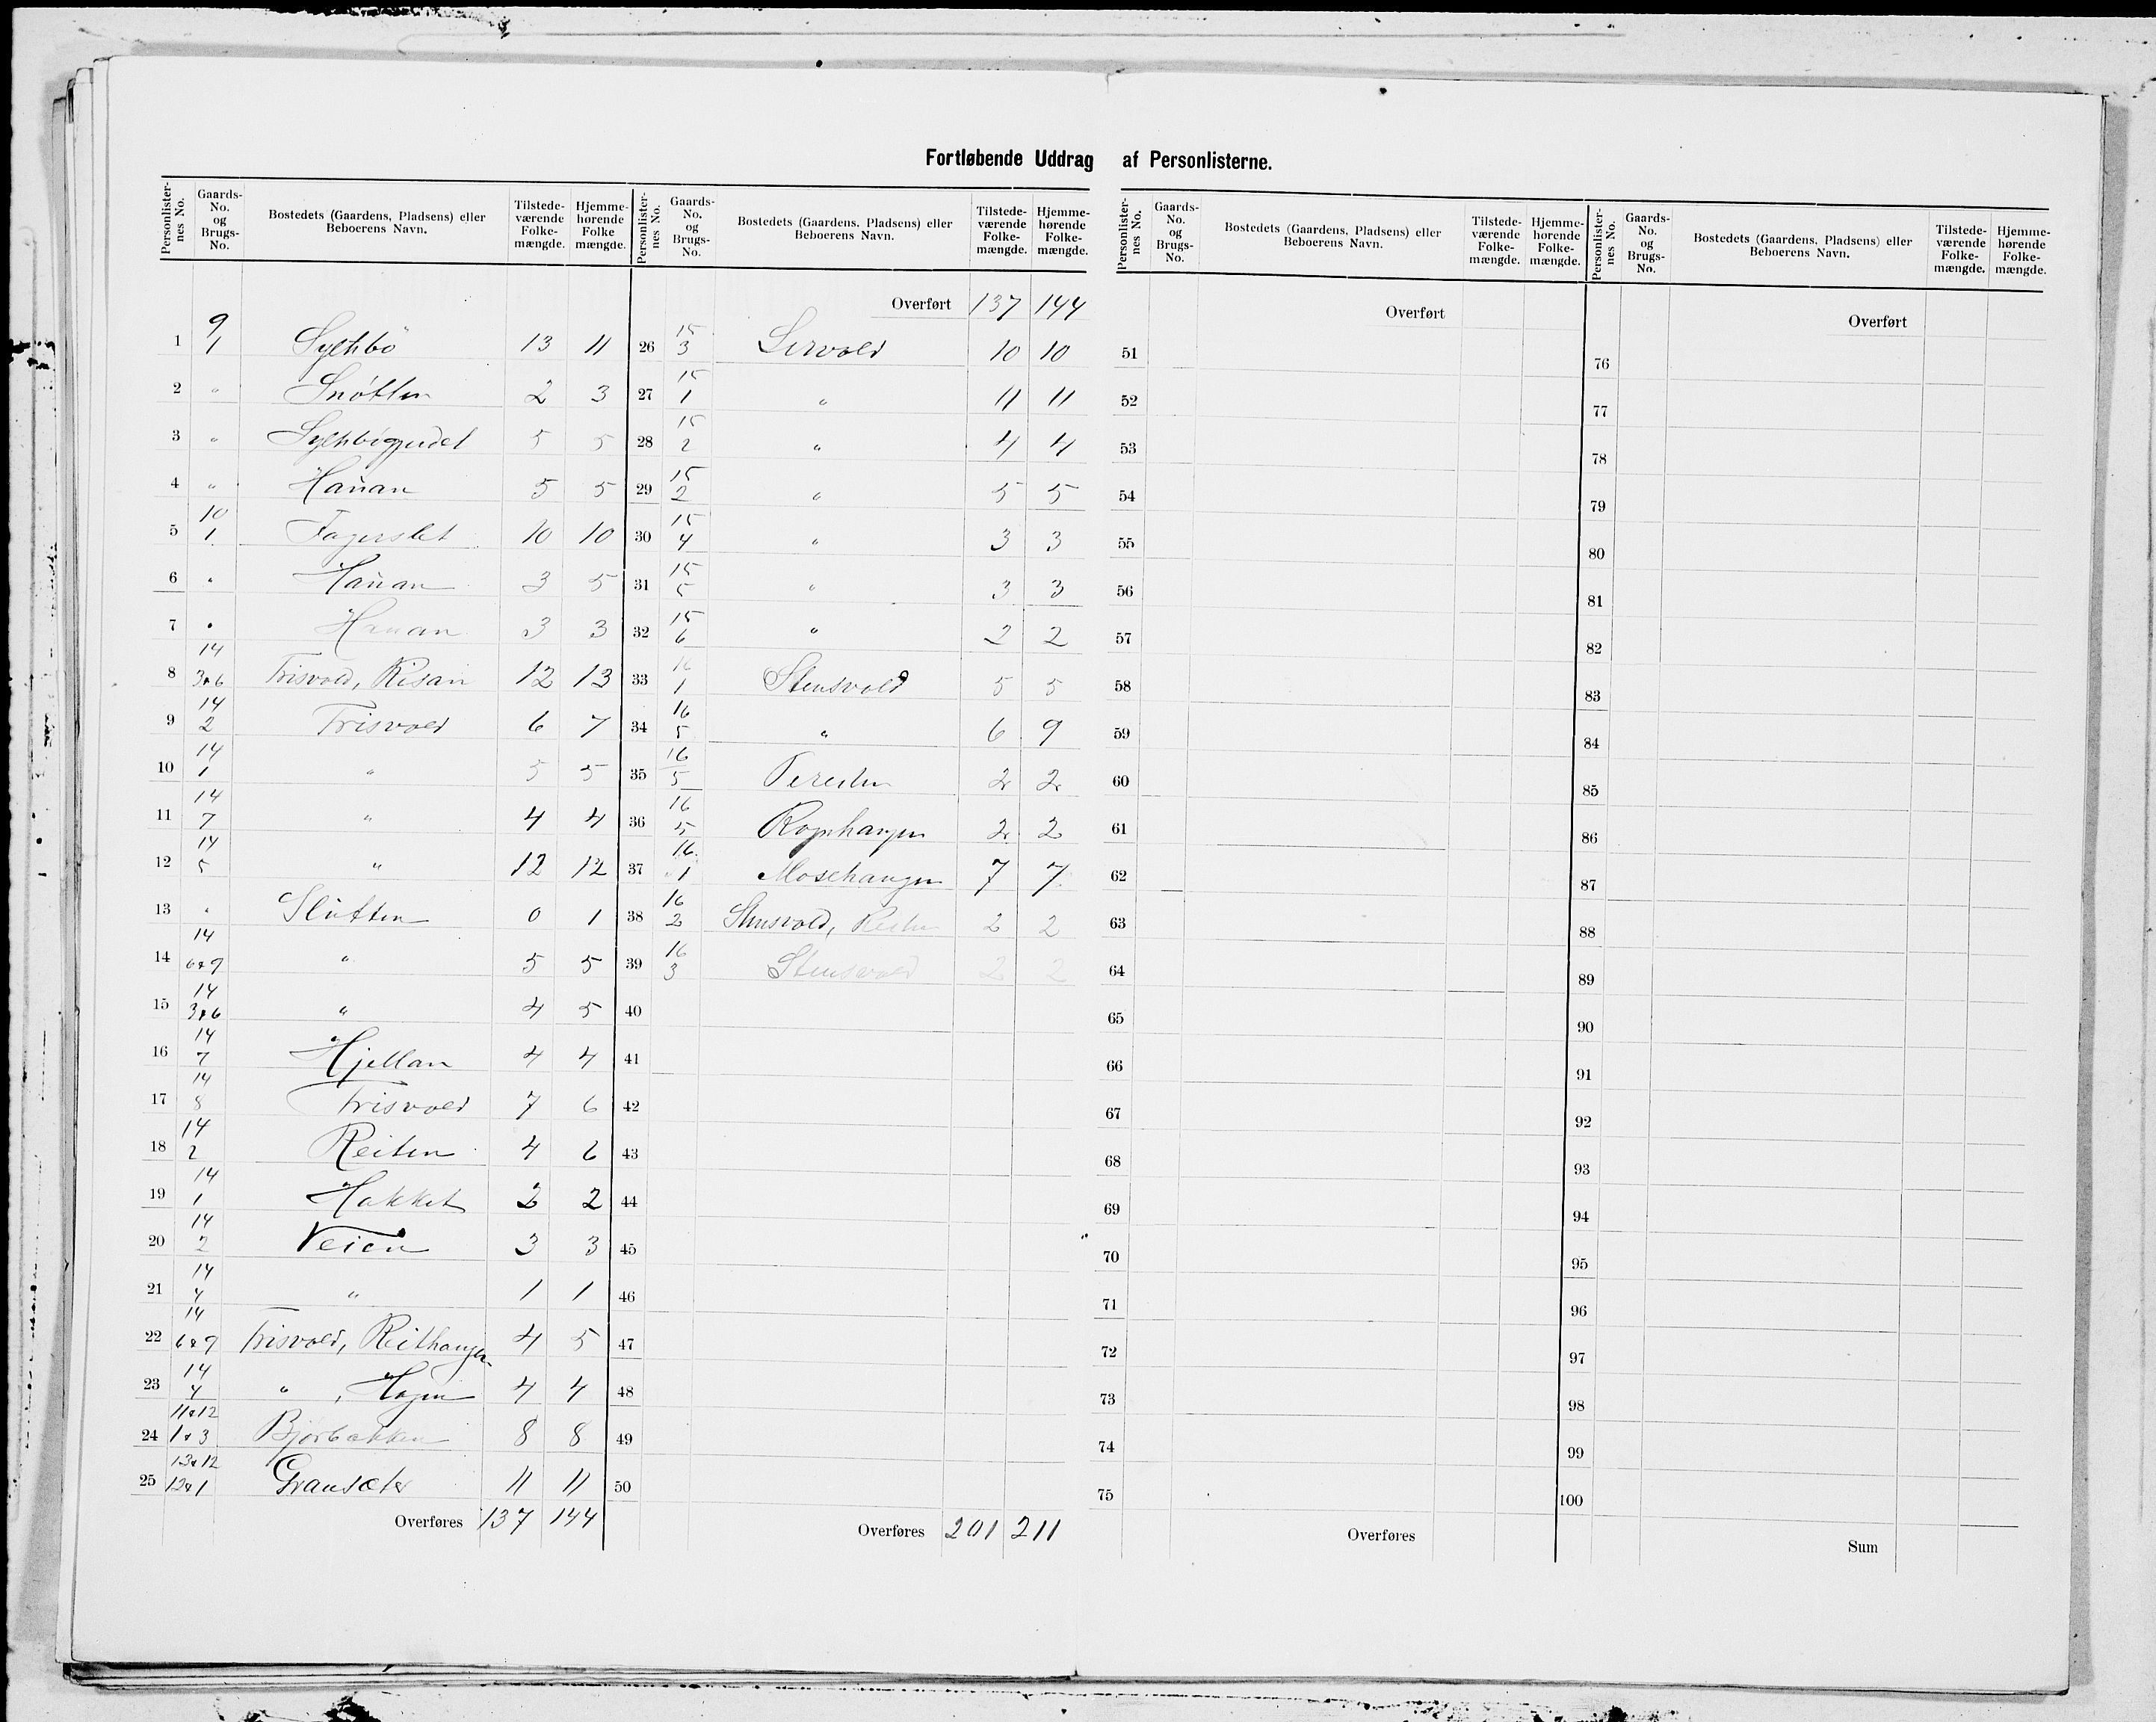 Fortløbende Uddrag af Personlisterne.
Personlisternes No. | Gaards-No. og Brugs-No. | Bostedets (Gaardens, Pladsens) eller Beboerens Navn. | Tilstedeværende Folkemængde. | Hjemmehørende Folkemængde.
1 | 9/1 | Sylthbø | 13 | 11
2 | " | Snøtten | 2 | 3
3 | " | 5 | 5
4 | " | Haŭan | 5 | 5
5 | 10/1 | Fagerslet | 10 | 10
6 | " | Haŭan | 3 | 5
7 | " | Hauan | 3 | 3
8 | 14/3&6 | Frisvold, Risan | 12 | 13
9 | 14/2 | Frisvold | 6 | 7
10 | 14/1 | " | 5 | 5
11 | 14/7 | " | 4 | 4
12 | 14/5 | " | 12 | 12
13 | " | Slŭtten | 0 | 1
14 | 14/6&9 | " | 5 | 5
15 | 14/3&6 | " | 4 | 5
16 | 14/7 | Hjellan | 4 | 4
17 | 14/8 | Frisvold | 7 | 6
18 | 14/2 | Reiten | 4 | 6
19 | 14/1 | Hakket | 2 | 2
20 | 14/2 | Veien | 3 | 3
21 | 14/4 | " | 1 | 1
22 | 14/6&9 | Frisvold, Reithaugen | 4 | 5
23 | 14/4 | " , Hagen | 4 | 4
24 | 11&12/1&3 | Bjørbakken | 8 | 8
25 | 13&12/12&1 | Gransæter | 11 | 11
Overføres 137 | 144
Personlisternes No. | Gaards-No. og Brugs-No. | Bostedets (Gaardens, Pladsens) eller Beboerens Navn. | Tilstedeværende Folkemængde. | Hjemmehørende Folkemængde.
Overført 137 | 144
26 | 15/3 | Lervold | 10 | 10
27 | 15/1 | " | 11 | 11
28 | 15/2 | " | 4 | 4
29 | 15/2 | " | 5 | 5
30 | 15/4 | " | 3 | 3
31 | 15/5 | " | 3 | 3
32 | 15/6 | " | 2 | 2
33 | 16/1 | Stensvold | 5 | 5
34 | 16/5 | " | 6 | 9
35 | 16/5 | 2 | 2
36 | 16/5 | 2 | 2
37 | 16/1 | Mosehaugen | 7 | 7
38 | 16/2 | Stensvold, Reiten | 2 | 2
39 | 16/3 | Stensvold | 2 | 2
40
41
42
43
44
45
46
47
48
49
50
Overføres 201 | 211
Personlisternes No. | Gaards-No. og Brugs-No. | Bostedets (Gaardens, Pladsens) eller Beboerens Navn. | Tilstedeværende Folkemængde. | Hjemmehørende Folkemængde.
Overført
51
52
53
54
55
56
57
58
59
60
61
62
63
64
65
66
67
68
69
70
71
72
73
74
75
Overføres
Personlisternes No. | Gaards-No. og Brugs-No. | Bostedets (Gaardens, Pladsens) eller Beboerens Navn. | Tilstedeværende Folkemængde. | Hjemmehørende Folkemængde.
Overført
76
77
78
79
80
81
82
83
84
85
86
87
88
89
90
91
92
93
94
95
96
97
98
99
100
Sum